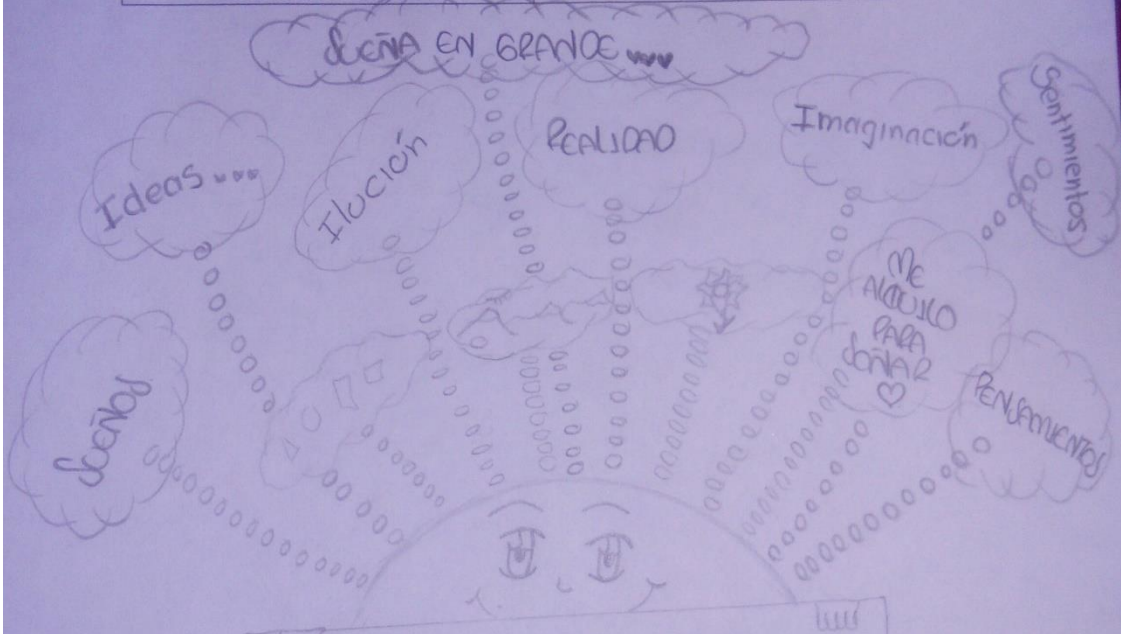 SUEÑA EN GRANDE...
Ideas...
Ilución
REALIDAD
Imaginación
Sentimientos
SUEÑOS
ME
ALQUILO
PARA
SOÑAR
PENSAMIENTOS